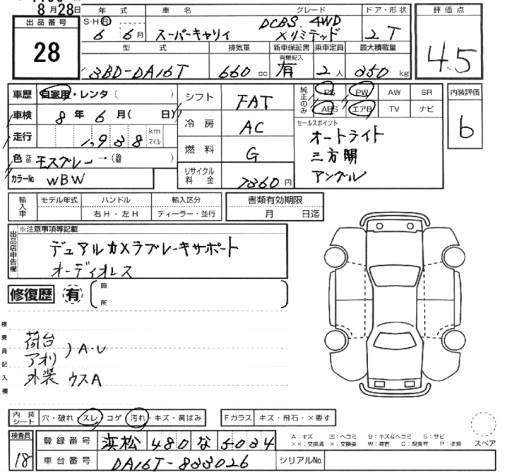 8月28日
出品番号
28
年式 車名 グレード ドア・形状 評価点
S・H・Ⓡ 6 6月 スーパーキャリイ DCBS. 4WD Xリミテッド 2 T
4.5
型式 排気量 新車保証書 乗車定員 最大積載量
有無記入
3BD-DA16T 660cc 有 2人 350kg
車歴 自家用・レンタ( )
シフト FAT
純正のみ PS PW AW SR
ABS エアB TV ナビ
内装評価
6
車検 8年6月( 日)
冷房 AC
セールスポイント
オートライト
三方開
アングル
走行 1,938 km マイル
燃料 G
色 モスグレー→( )
カラー№ WBW
リサイクル料金 7360円
輸入車 モデル年式 ハンドル 輸入区分
右H・左H ディーラー・並行
書類有効期限
月 日迄
出品店申告欄
※注意事項等記載
デュアルカメラブレーキサポート
オーディオレス
修復歴 有 箇所
検査員記入欄
荷台
アオリ )A・U
外装 ウスA
内装シート 穴・破れ・スレ・コゲ・汚れ・キズ・黒ばみ
Fガラス キズ・飛石・×要す
スペア
検査員
18
登録番号 浜松 480 な 5034
車台番号 DA16T-833026
シリアルNo.
A:キズ U:ヘコミ B:キズ&ヘコミ S:サビ